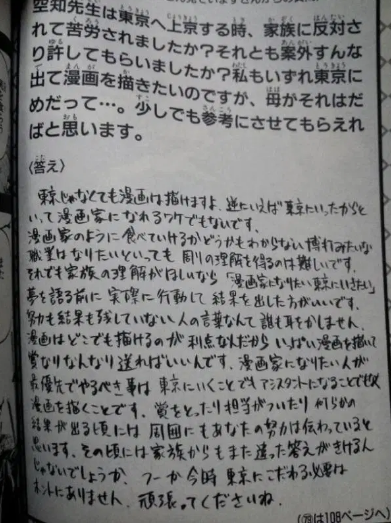 空知先生は東京へ上京する時、家族に反対さ
れて苦労されましたか?それとも案外すんな
り許してもらいましたか?私もいずれ東京に
出て漫画を描きたいのですが、母がそれはだ
めだって…。少しでも参考にさせてもらえれ
ばと思います。
〈答え〉
東京じゃなくても漫画は描けますよ。逆にいえば東京にいったからと
いって漫画家になれるワケでもないです。
漫画家のように食べていけるかどうかもわからない博打みたいな
職業はなりたいといっても周りの理解を得るのは難しいです。
それでも家族の理解がほしいなら「漫画家になりたい東京にいきたい」
夢を語る前に実際に行動して結果を出した方がいいです。
努力も結果も残していない人の言葉なんて誰も耳をかしません。
漫画はどこでも描けるのが利点なんだからいっぱい漫画を描いて
賞なりなんなり送ればいいんです。漫画家になりたい人が
最優先でやるべき事は東京にいくことでもアシスタントになることでもなく
漫画を描くことです。賞をとったり担当がついたり何らかの
結果が出る頃には周囲にもあなたの努力は伝わっていると
思います。その頃には家族からもまた違った答えがきけるん
じゃないでしょうか。つーか今時東京にこだわる必要は
ホントにありません。頑張ってくださいね。
(79は108ページへ)